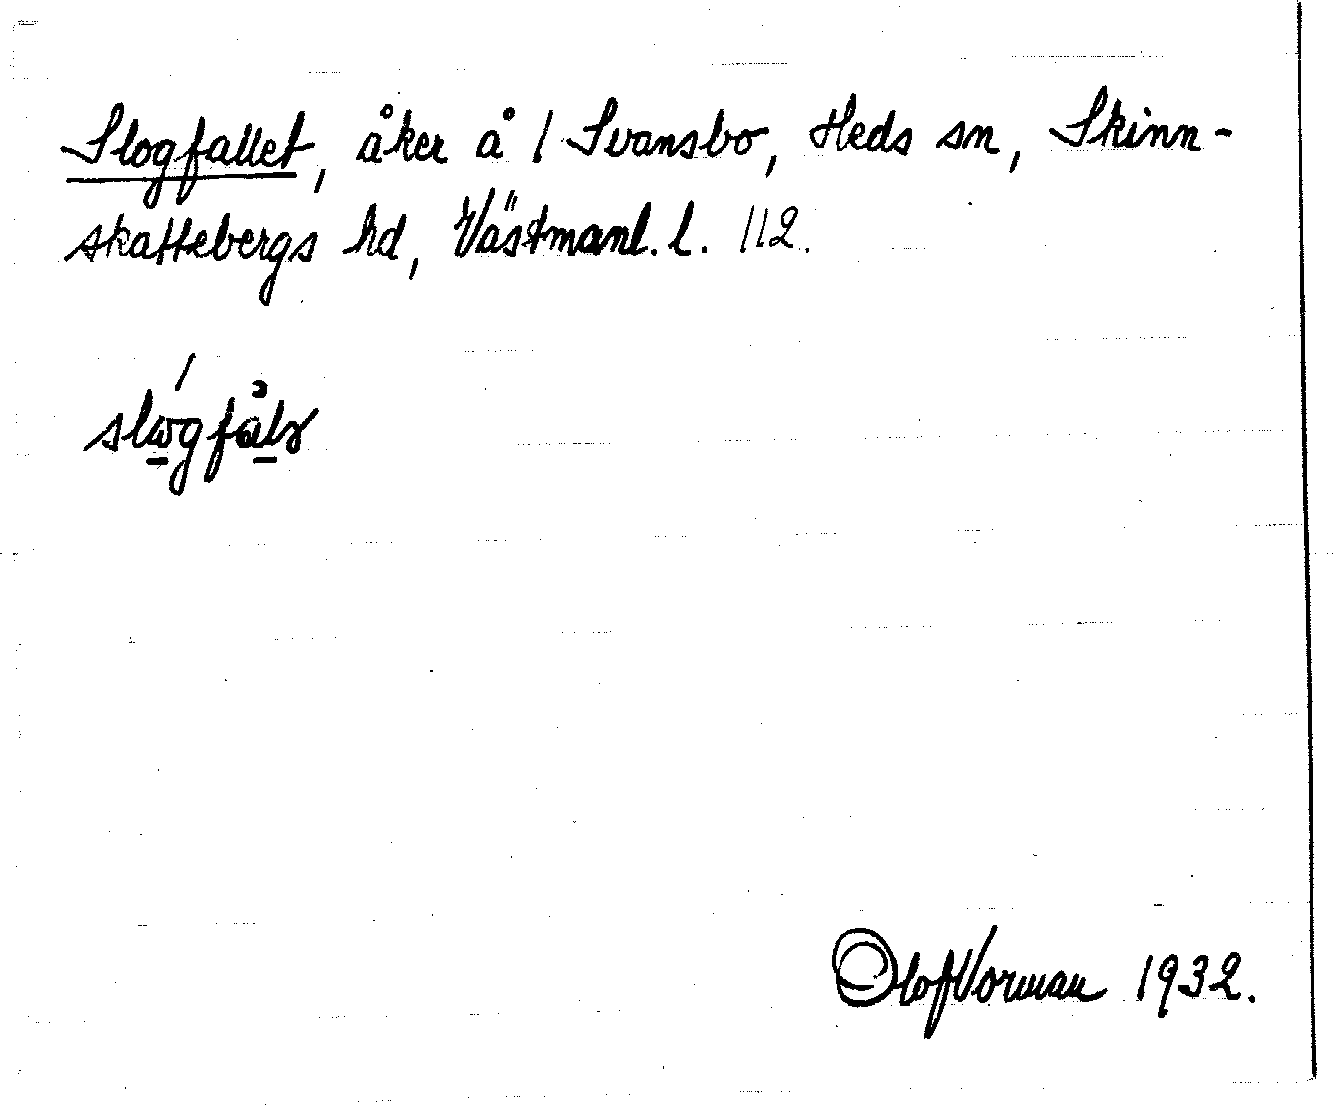 Slogfallet, åker å 1 Svansbo, Heds sn, Skinn-
skattebergs hd, Västmanl. l. 112.
Olof Vorman 1932.